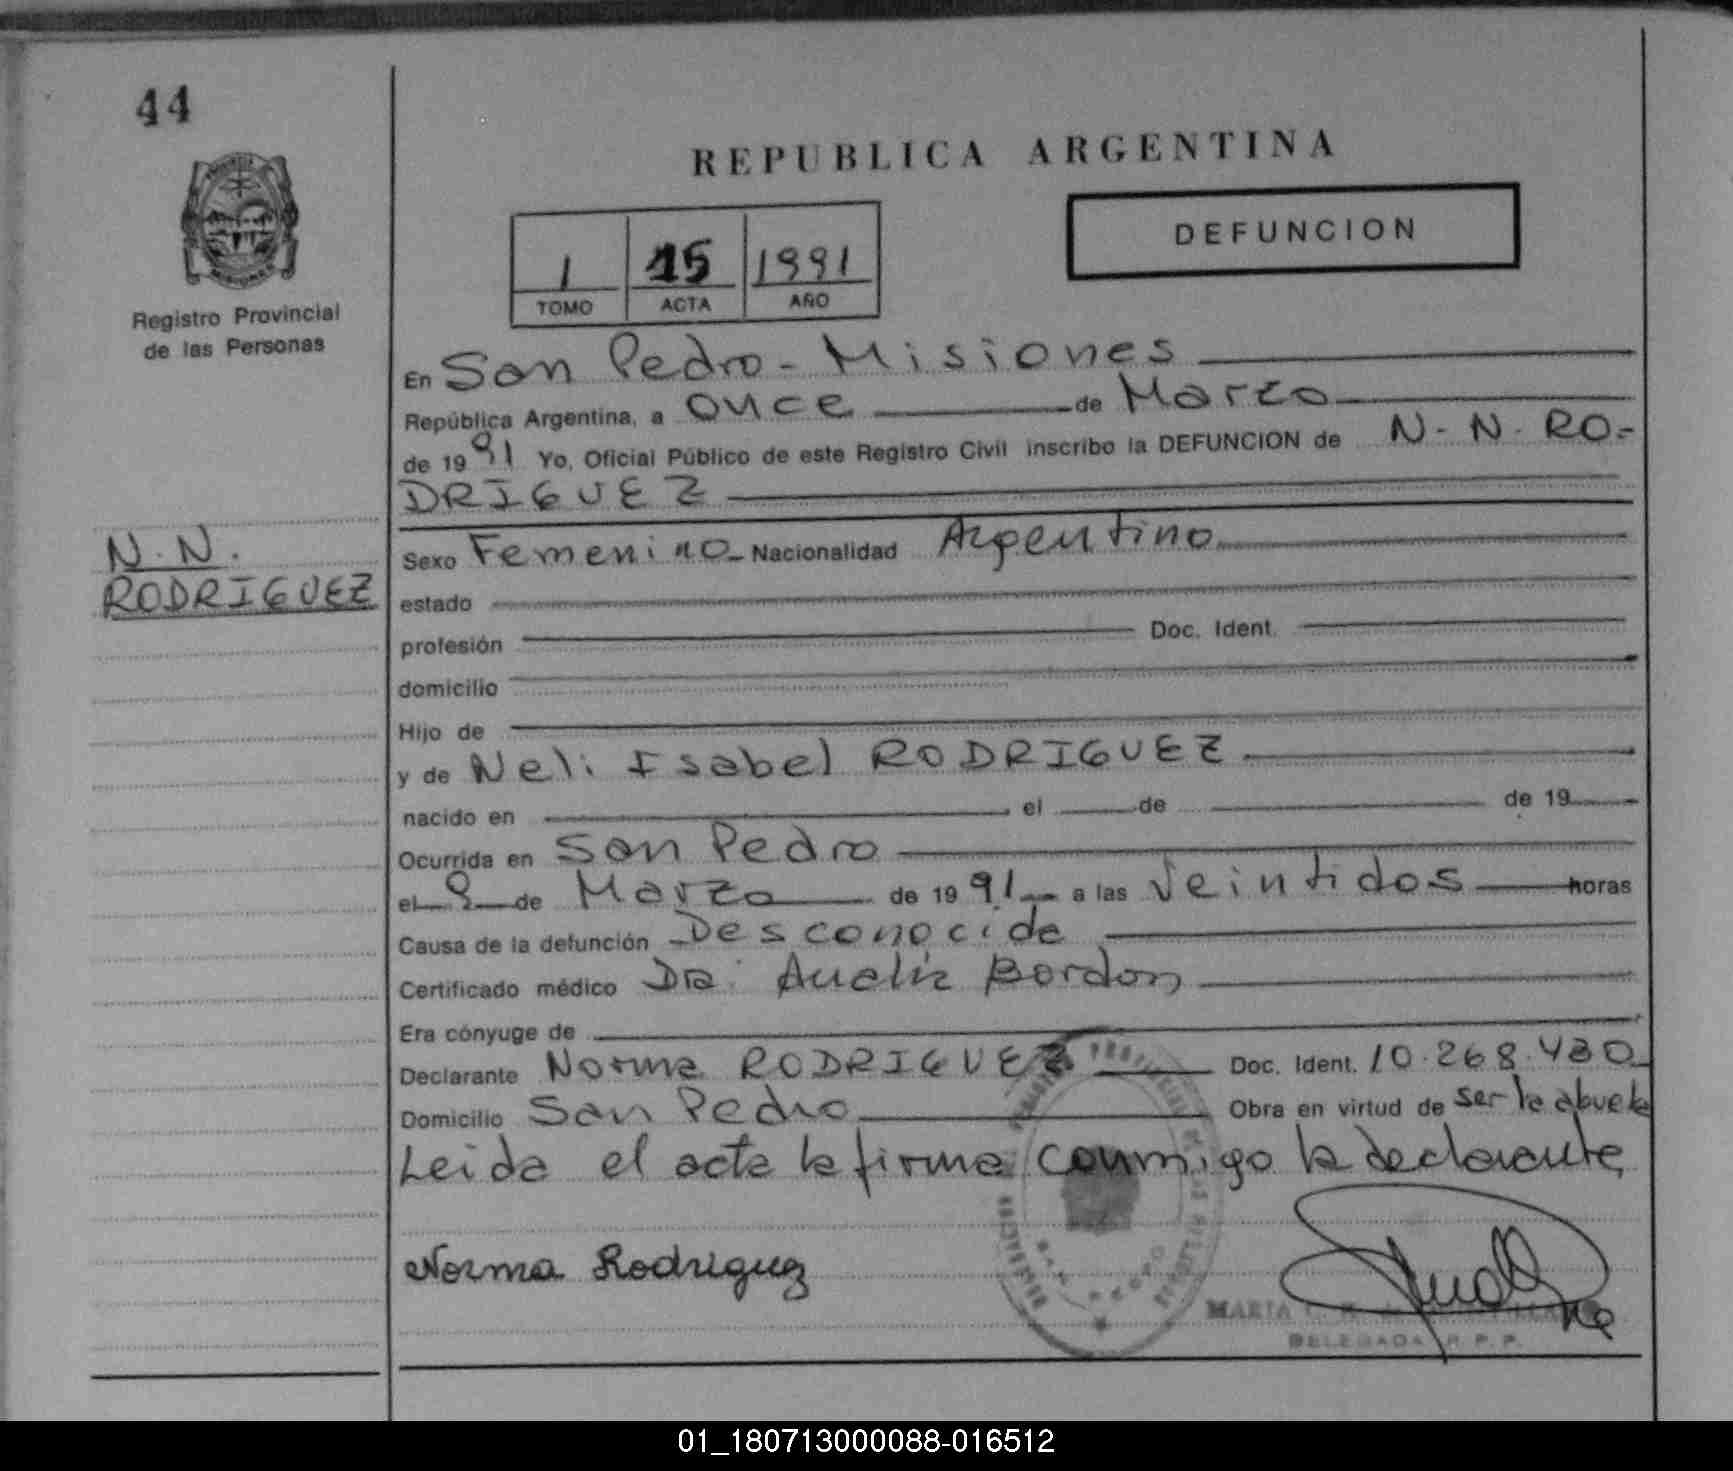 44
REPUBLICA ARGENTINA
DEFUNCION
1 15 1991
TOMO ACTA AÑO
Registro Provincial
de las Personas
En San Pedro - Misiones
República Argentina, a once de Marzo
de 1991 Yo, Oficial Público de este Registro Civil inscribo la DEFUNCION de N. N. RO-
DRIGUEZ
N. N.
RODRIGUEZ
Sexo Femenino Nacionalidad Argentino
estado
profesión Doc. Ident.
domicilio
Hijo de
y de Neli Isabel RODRIGUEZ
nacido en el de de 19
Ocurrida en San Pedro
el 9 de Marzo de 1991 a las Veintidos horas
Causa de la defunción Desconocida
Certificado médico Dra. Bordon
Era cónyuge de
Declarante Norma RODRIGUEZ Doc. Ident. 10.268.480
Domicilio San Pedro Obra en virtud de ser la abuela
Leida el acta la firma conmigo la declarante
Norma Rodriguez
MARIA
DELEGADA R.P.P.
01_180713000088-016512